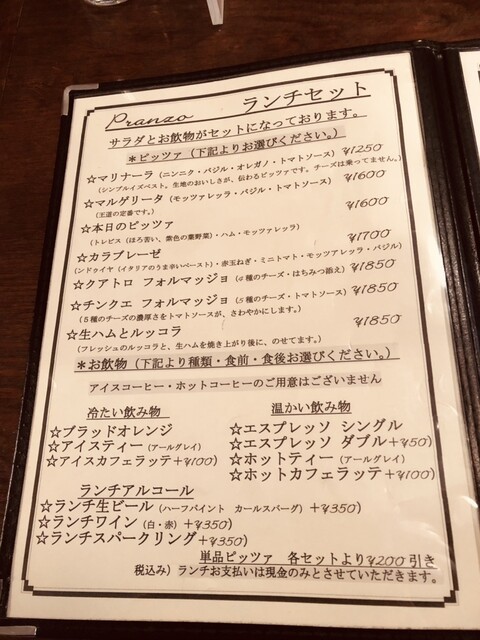 Pranzo ランチセット
サラダとお飲物がセットになっております。
＊ピッツァ（下記よりお選びください。）
☆マリナーラ（ニンニク・バジル・オレガノ・トマトソース）¥1250
（シンプルイズベスト。生地のおいしさが、伝わるピッツァです。チーズは乗ってません。）
☆マルゲリータ（モッツァレッラ・バジル・トマトソース）¥1600
（王道の定番です。）
☆本日のピッツァ ¥1600
（トレビス（ほろ苦い、紫色の葉野菜）・ハム・モッツァレッラ）
☆カラブレーゼ ¥1700
（ンドゥイヤ（イタリアのうま辛いペースト）・赤玉ねぎ・ミニトマト・モッツァレッラ・バジル）
☆クアトロ フォルマッジョ（4種のチーズ・はちみつ添え）¥1850
☆チンクエ フォルマッジョ（5種のチーズ・トマトソース）¥1850
（5種のチーズの濃厚さをトマトソースが、さわやかにします。）
☆生ハムとルッコラ ¥1850
（フレッシュのルッコラと、生ハムを焼き上がり後に、のせてます。）
＊お飲物（下記より種類・食前・食後お選びください。）
アイスコーヒー・ホットコーヒーのご用意はございません
冷たい飲み物
☆ブラッドオレンジ
☆アイスティー（アールグレイ）
☆アイスカフェラッテ+¥100）
温かい飲み物
☆エスプレッソ シングル
☆エスプレッソ ダブル+¥50）
☆ホットティー（アールグレイ）
☆ホットカフェラッテ+¥100）
ランチアルコール
☆ランチ生ビール（ハーフパイント カールスバーグ）+¥350）
☆ランチワイン（白・赤）+¥350）
☆ランチスパークリング+¥350）
単品ピッツァ 各セットより¥200引き
税込み）ランチお支払いは現金のみとさせていただきます。